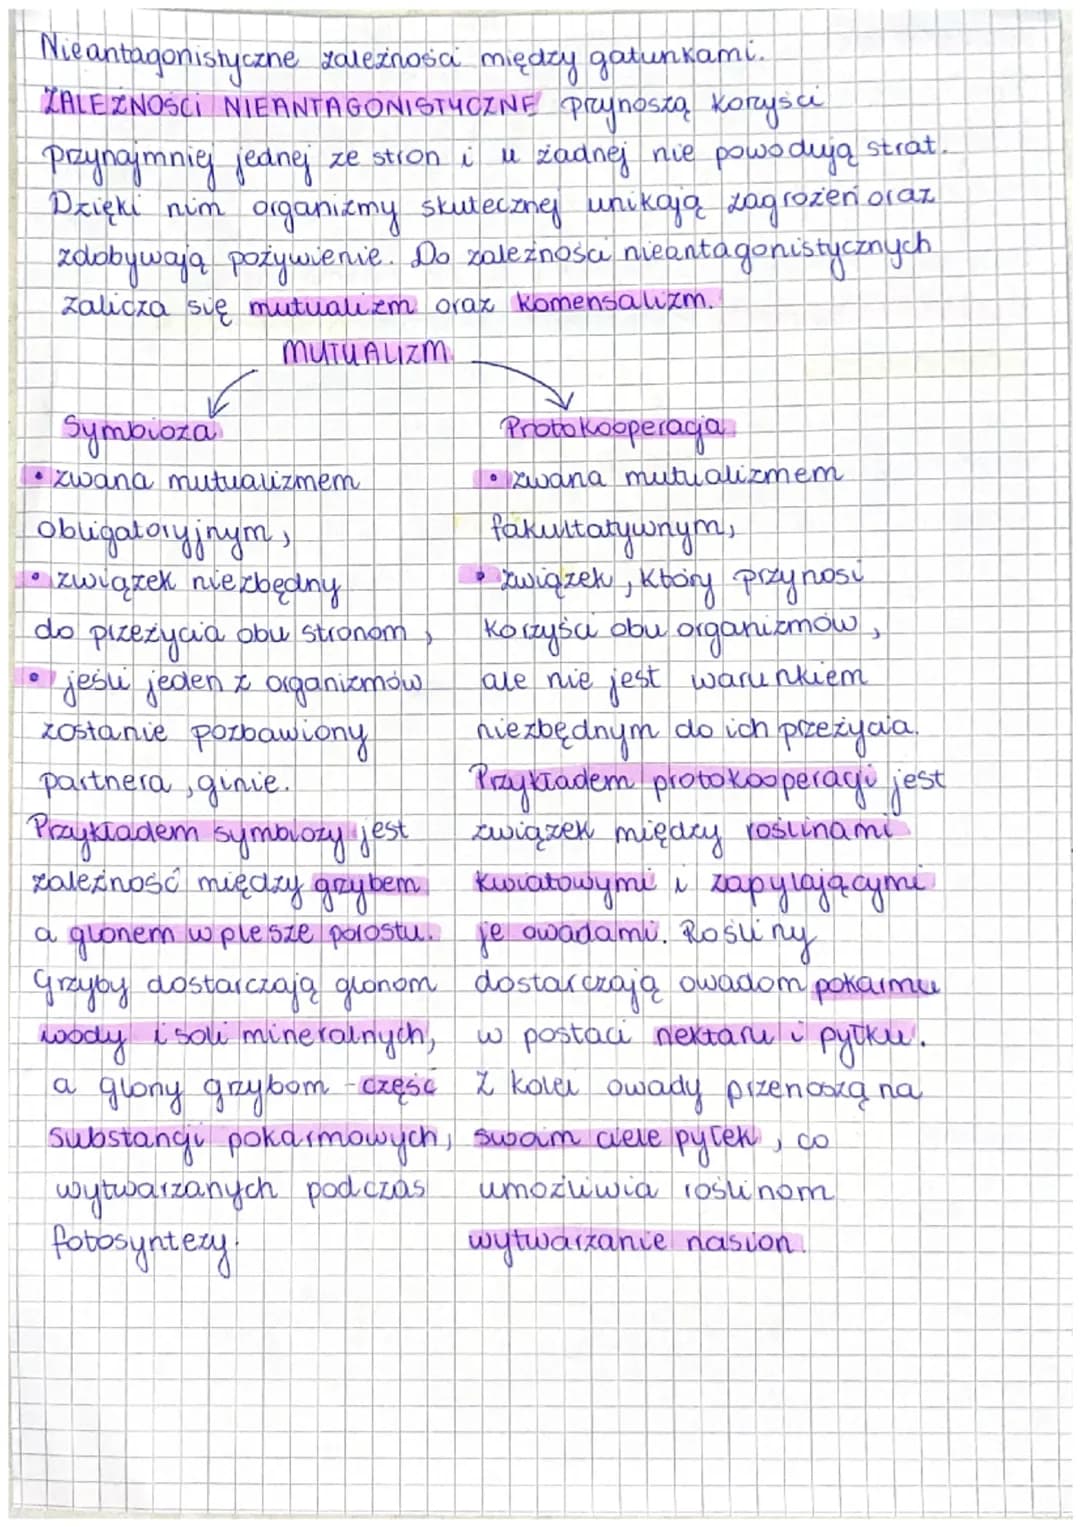 Nieantagonistyczne zależności między gatunkami.
ZALEŻNOŚCI NIEANTAGONISTYCZNE przynoszą korzyści
przynajmniej jednej ze stron i u żadnej nie powodują strat.
Dzięki nim organizmy skuteczniej unikają zagrożeń oraz
zdobywają pożywienie. Do zależności nieantagonistycznych
zalicza się mutualizm oraz komensalizm.
MUTUALIZM
Symbioza
• zwana mutualizmem
obligatoryjnym,
• związek niezbędny
do przeżycia obu stronom,
• jeśli jeden z organizmów
zostanie pozbawiony
partnera, ginie.
Przykładem symbiozy jest
zależność między grzybem
a glonem w plesze porostu.
Grzyby dostarczają glonom
wody i soli mineralnych,
a glony grzybom - część
substancji pokarmowych,
wytwarzanych podczas
fotosyntezy.
Protokooperacja
• zwana mutualizmem
fakultatywnym,
• związek, który przynosi
korzyści obu organizmów,
ale nie jest warunkiem
niezbędnym do ich przeżycia.
Przykładem protokooperacji jest
związek między roślinami
kwiatowymi i zapylającymi
je owadami. Rośliny
dostarczają owadom pokarmu
w postaci nektaru i pyłku.
Z kolei owady przenoszą na
swoim ciele pyłek, co
umożliwia roślinom
wytwarzanie nasion.